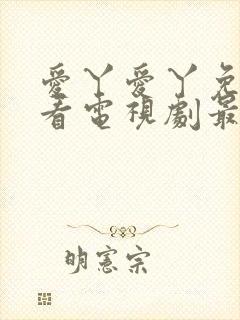 愛丫愛丫免
看電視劇最
明憲宗